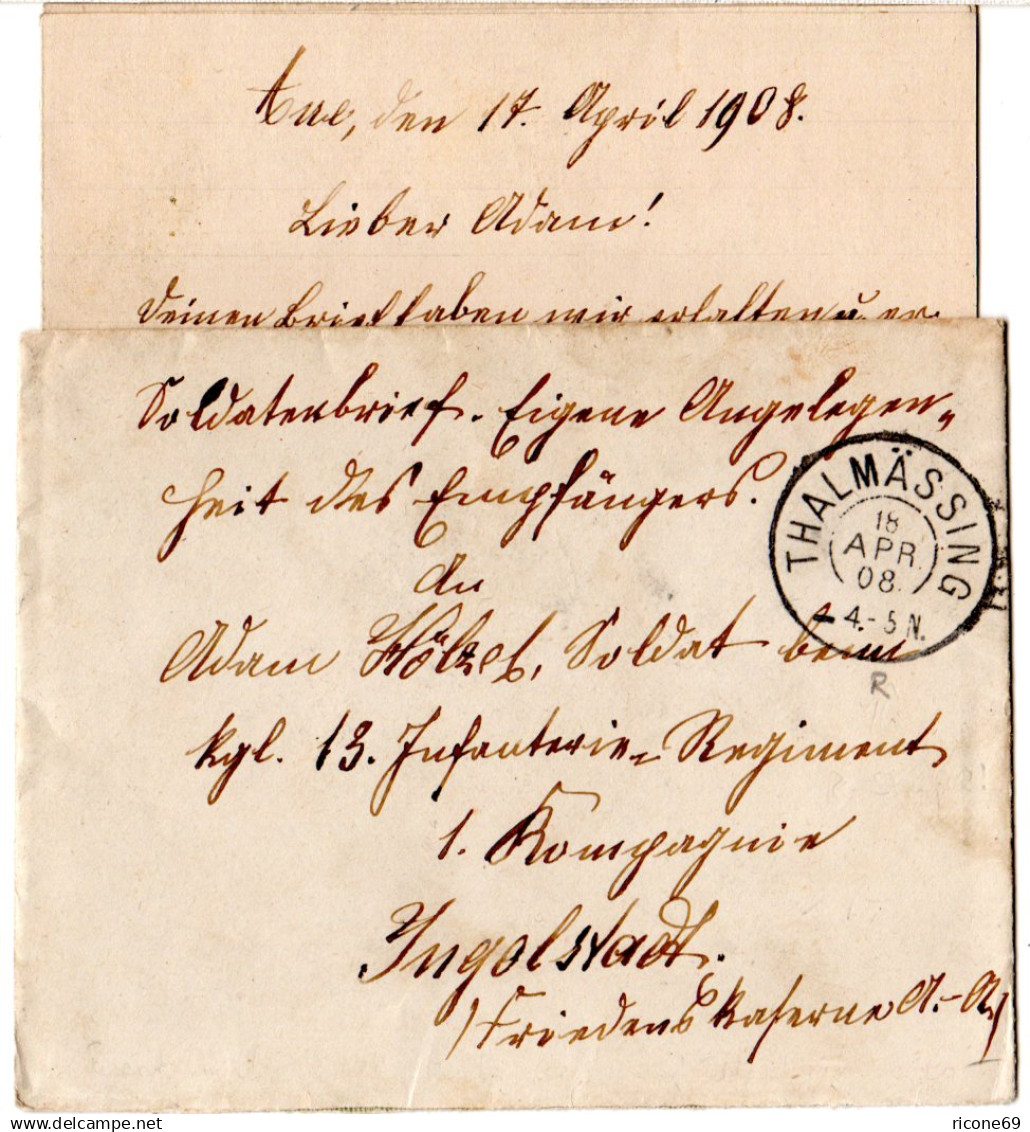 Aue, den 17. April 1908.
Lieber Adam!
Deinen Brief haben wir erhalten u. er-
Soldatenbrief. Eigene Angelegen-
heit des Empfängers.
An
Adam Hölzel, Soldat beim
kgl. 13. Infanterie-Regiment
1. Kompagnie
Ingolstadt.
/Friedenskaserne A.-A./
THALMÄSSING
18
APR.
08.
4.-5 N.
R
delcampe.net
ricone69